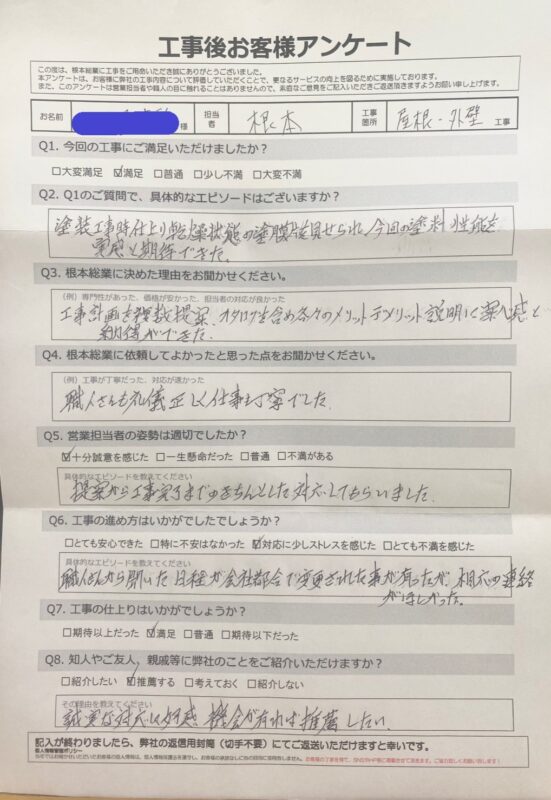 工事後お客様アンケート
この度は、根本総業に工事をご用命いただき誠にありがとうございました。
本アンケートは、お客様に弊社の工事内容について評価していただくことで、更なるサービスの向上を図るために実施しております。
また、このアンケートは営業担当者や職人の目に触れることはありませんので、素直なご意見をご記入いただきご返送頂きますようお願い申し上げます。
お名前 様 担当者 根本 工事箇所 屋根・外壁 工事
Q1. 今回の工事にご満足いただけましたか?
□大変満足 ☑満足 □普通 □少し不満 □大変不満
Q2. Q1のご質問で、具体的なエピソードはございますか?
塗装工事時仕上り乾燥状態の塗膜を見せられ、今回の塗料性能を
実感と期待できた。
Q3. 根本総業に決めた理由をお聞かせください。
(例)専門性があった、価格が安かった、担当者の対応が良かった
工事計画を複数提案、カタログを含め各々のメリットデメリット説明に安心感と
納得ができた
Q4. 根本総業に依頼してよかったと思った点をお聞かせください。
(例)工事が丁寧だった、対応が速かった
職人さんも礼儀正しく仕事も丁寧でした
Q5. 営業担当者の姿勢は適切でしたか?
☑十分誠意を感じた □一生懸命だった □普通 □不満がある
具体的なエピソードを教えてください
提案から工事完了まできちんとした対応してもらいました
Q6. 工事の進め方はいかがでしたでしょうか?
□とても安心できた □特に不安はなかった ☑対応に少しストレスを感じた □とても不満を感じた
具体的なエピソードを教えてください
職人さんから聞いた日程が会社都合で変更された事が有ったが、相応の連絡
がほしかった。
Q7. 工事の仕上りはいかがでしょうか?
□期待以上だった ☑満足 □普通 □期待以下だった
Q8. 知人やご友人、親戚等に弊社のことをご紹介いただけますか?
□紹介したい ☑推薦する □考えておく □紹介しない
その理由を教えてください
誠実な対応に好感 機会が有れば推薦したい
記入が終わりましたら、弊社の返信用封筒(切手不要)にてご返送いただけますと幸いです。
個人情報管理ポリシー